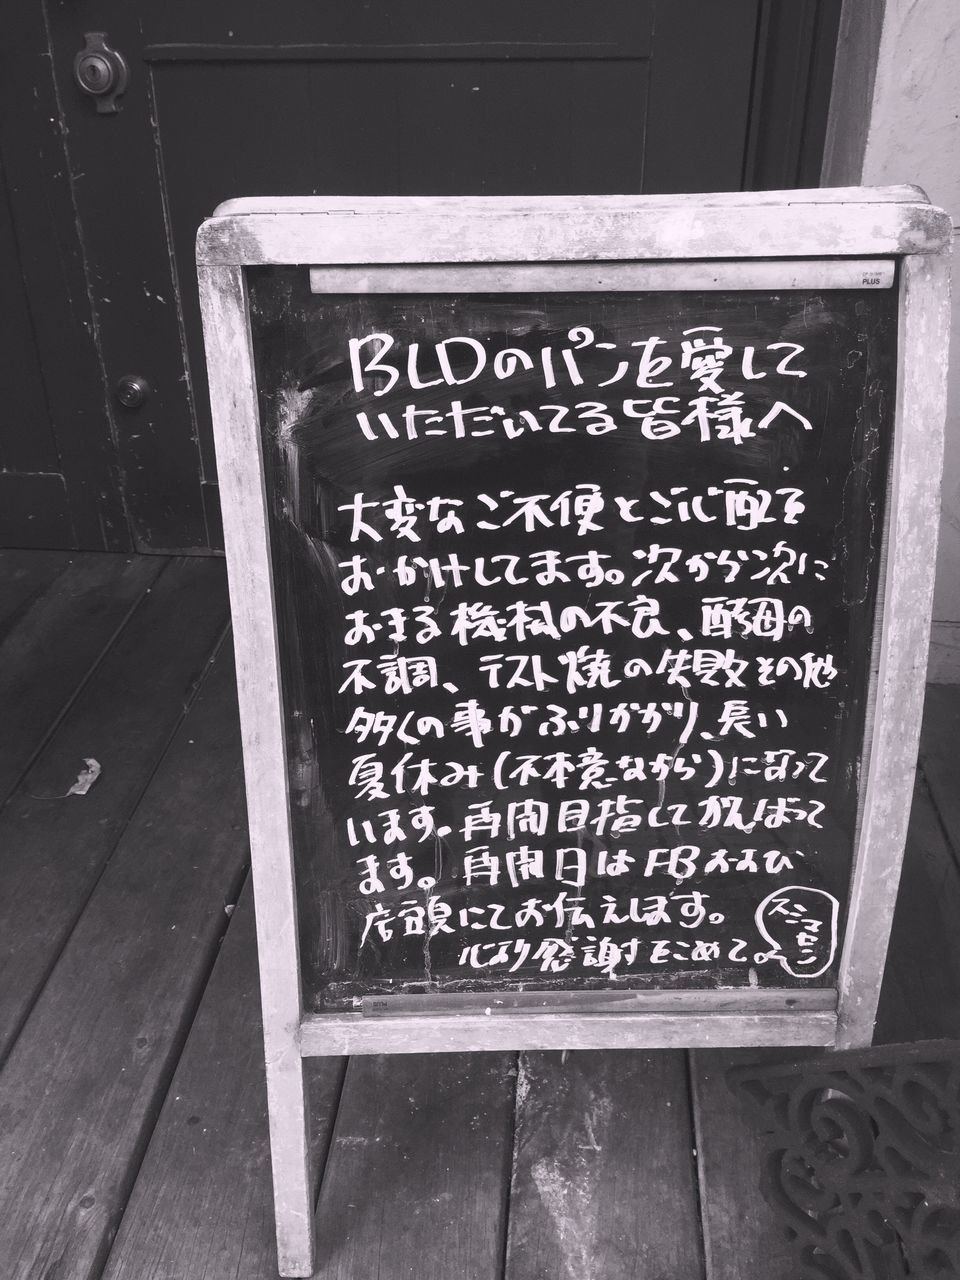 PLUS
BLDのパンを愛して
いただいてる皆様へ
大変なご不便とご心配を
おかけしてます。次から次に
おきる機械の不良、酵母の
不調、テスト焼の失敗その他
多くの事がふりかかり、長い
夏休み(不本意ながら)になって
います。再開目指してがんばって
ます。再開日はFBおよび
店頭にてお伝えします。
心より感謝をこめて。
スミマセン